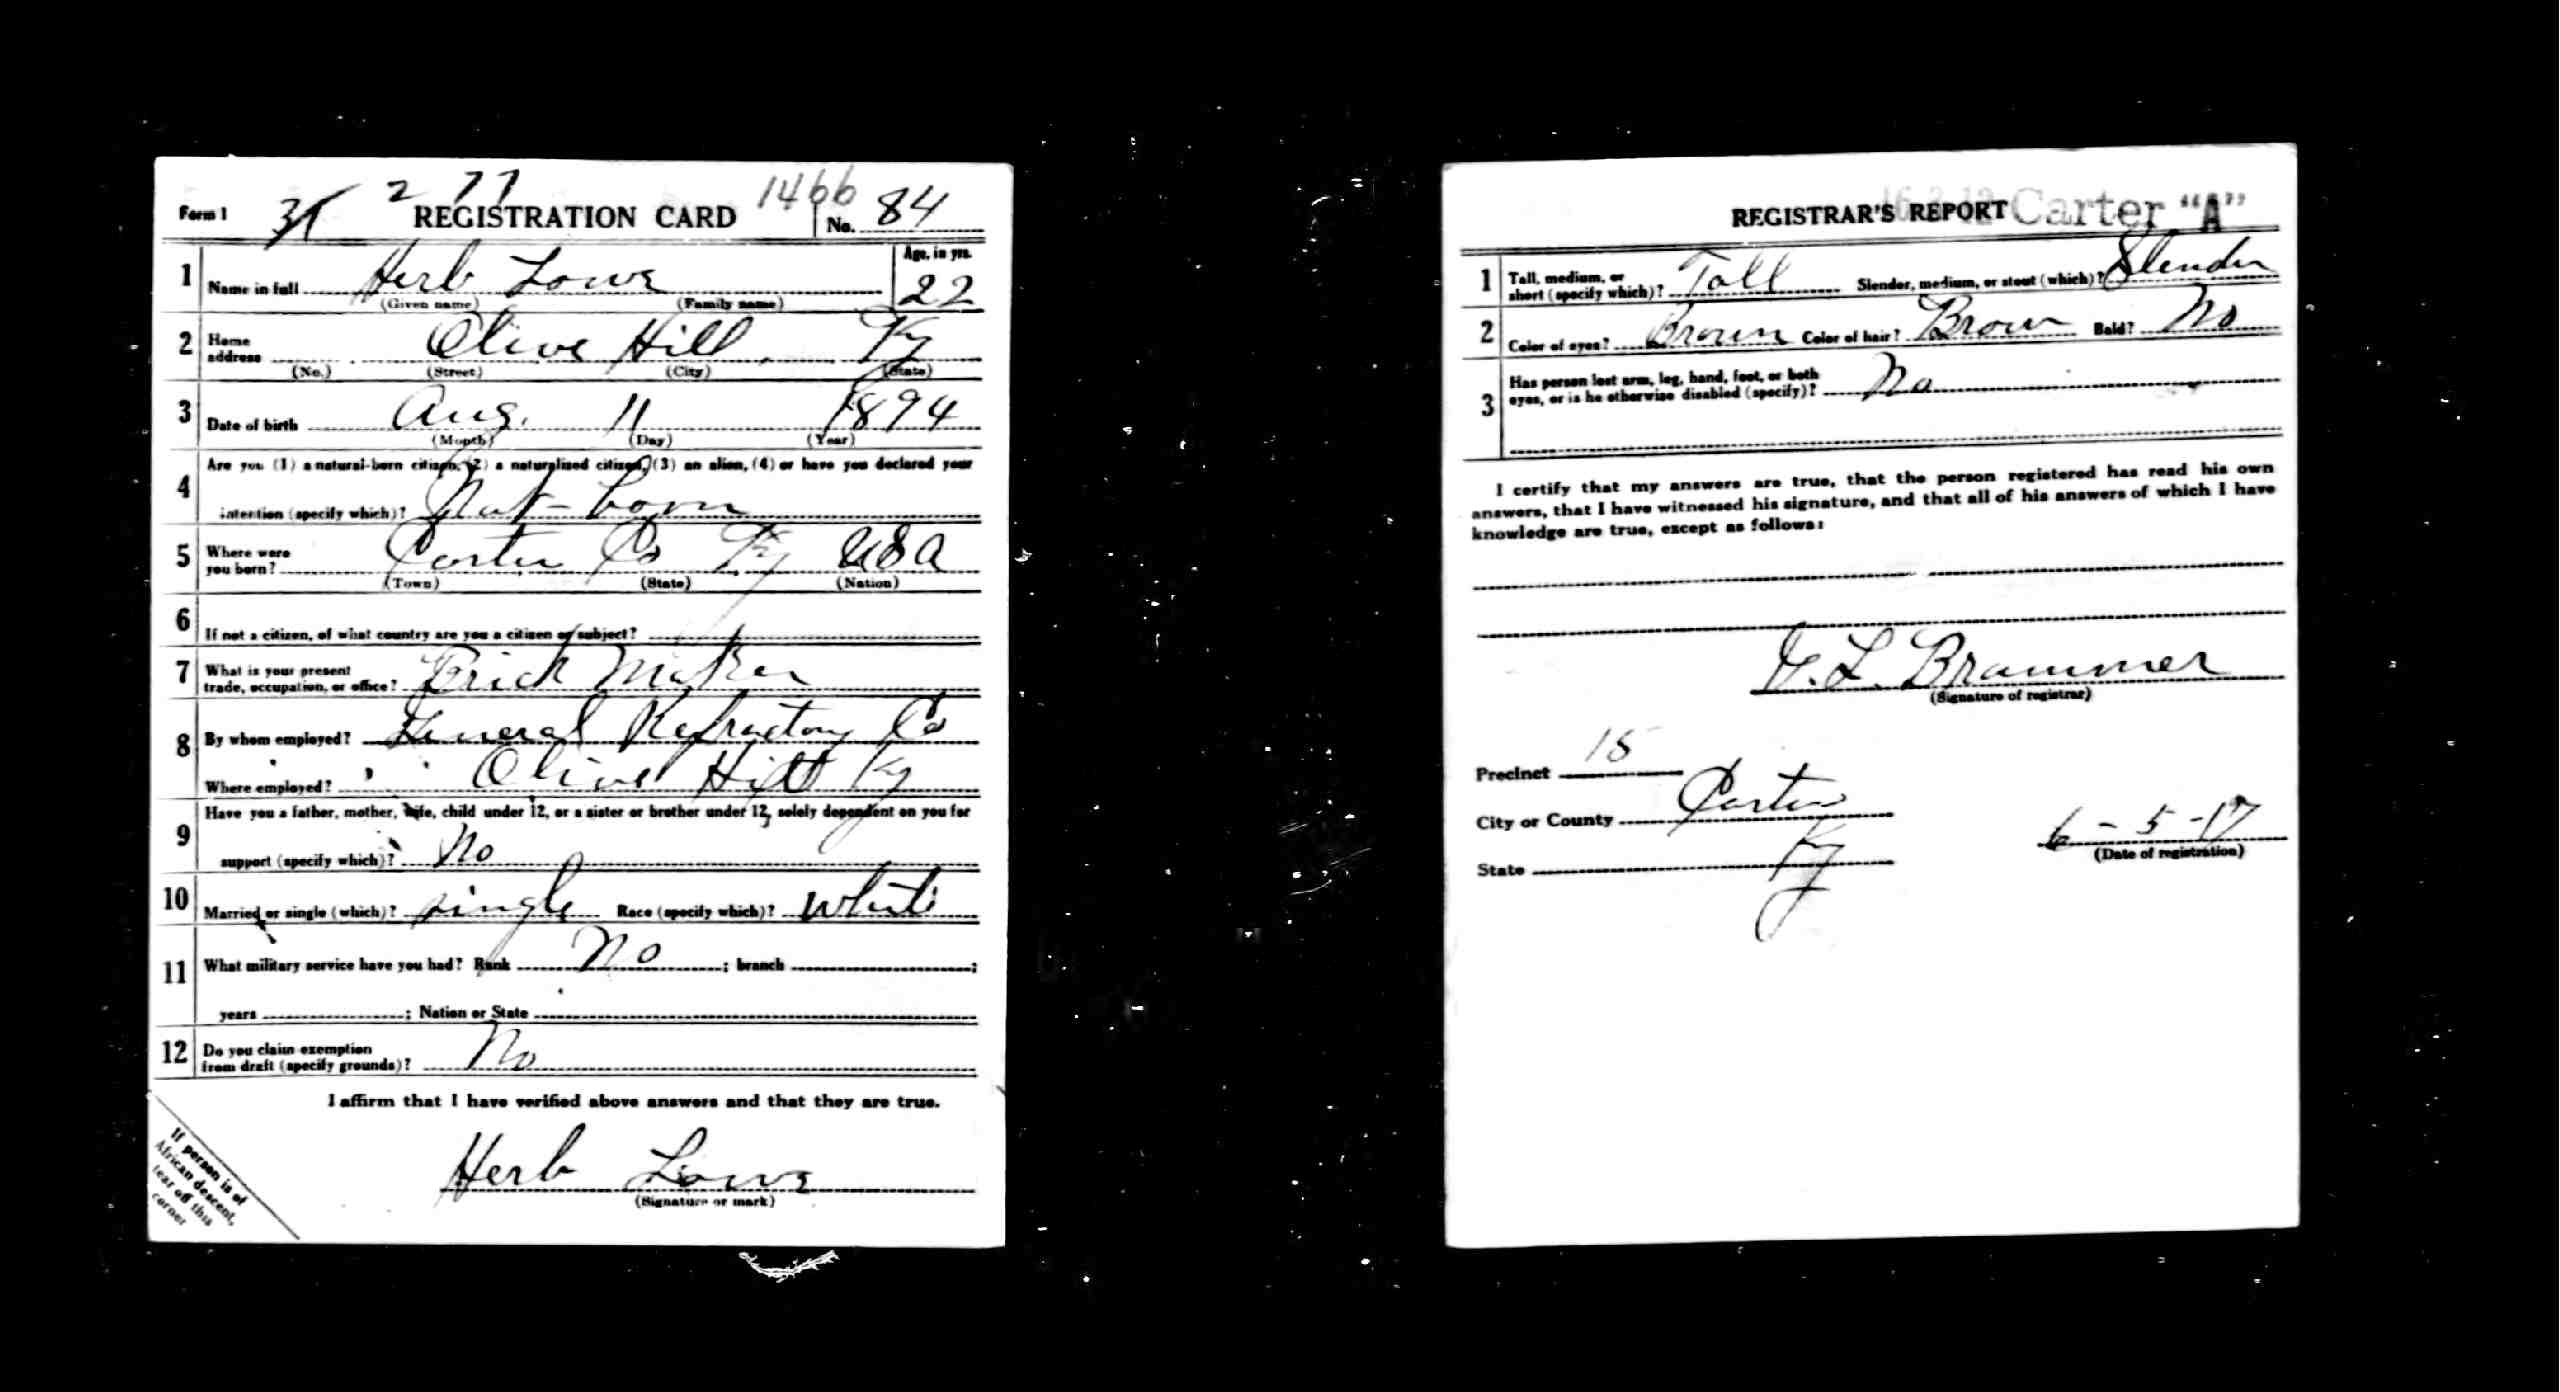 2 77 1466
Form 1 REGISTRATION CARD No. 84
1 Name in full Herb Lowe Age, in yrs. 22
(Given name) (Family name)
2 Home address Olive Hill, Ky
(No.) (Street) (City) (State)
3 Date of birth Aug. 11 1894
(Month) (Day) (Year)
4 Are you (1) a natural-born citizen, (2) a naturalized citizen, (3) an alien, (4) or have you declared your
intention (specify which)? Nat-born
5 Where were you born? Carter Co Ky USA
(Town) (State) (Nation)
6 If not a citizen, of what country are you a citizen or subject?
7 What is your present
trade, occupation, or office? Brick Maker
8 By whom employed? General Refractory Co
Where employed? Olive Hill Ky
9 Have you a father, mother, wife, child under 12, or a sister or brother under 12, solely dependent on you for
support (specify which)? No
10 Married or single (which)? single Race (specify which)? white
11 What military service have you had? Rank No ; branch ;
years ; Nation or State
12 Do you claim exemption
from draft (specify grounds)? No
I affirm that I have verified above answers and that they are true.
Herb Lowe
(Signature or mark)
If person is of
African descent,
tear off this
corner
REGISTRAR'S REPORT Carter "A"
1 Tall, medium, or
short (specify which)? Tall Slender, medium, or stout (which)? Slender
2 Color of eyes? Brown Color of hair? Brown Bald? No
3 Has person lost arm, leg, hand, foot, or both
eyes, or is he otherwise disabled (specify)? No
I certify that my answers are true, that the person registered has read his own
answers, that I have witnessed his signature, and that all of his answers of which I have
knowledge are true, except as follows:
L. Brammer
(Signature of registrar)
Precinct 15
City or County Carter
State Ky
6-5-17
(Date of registration)